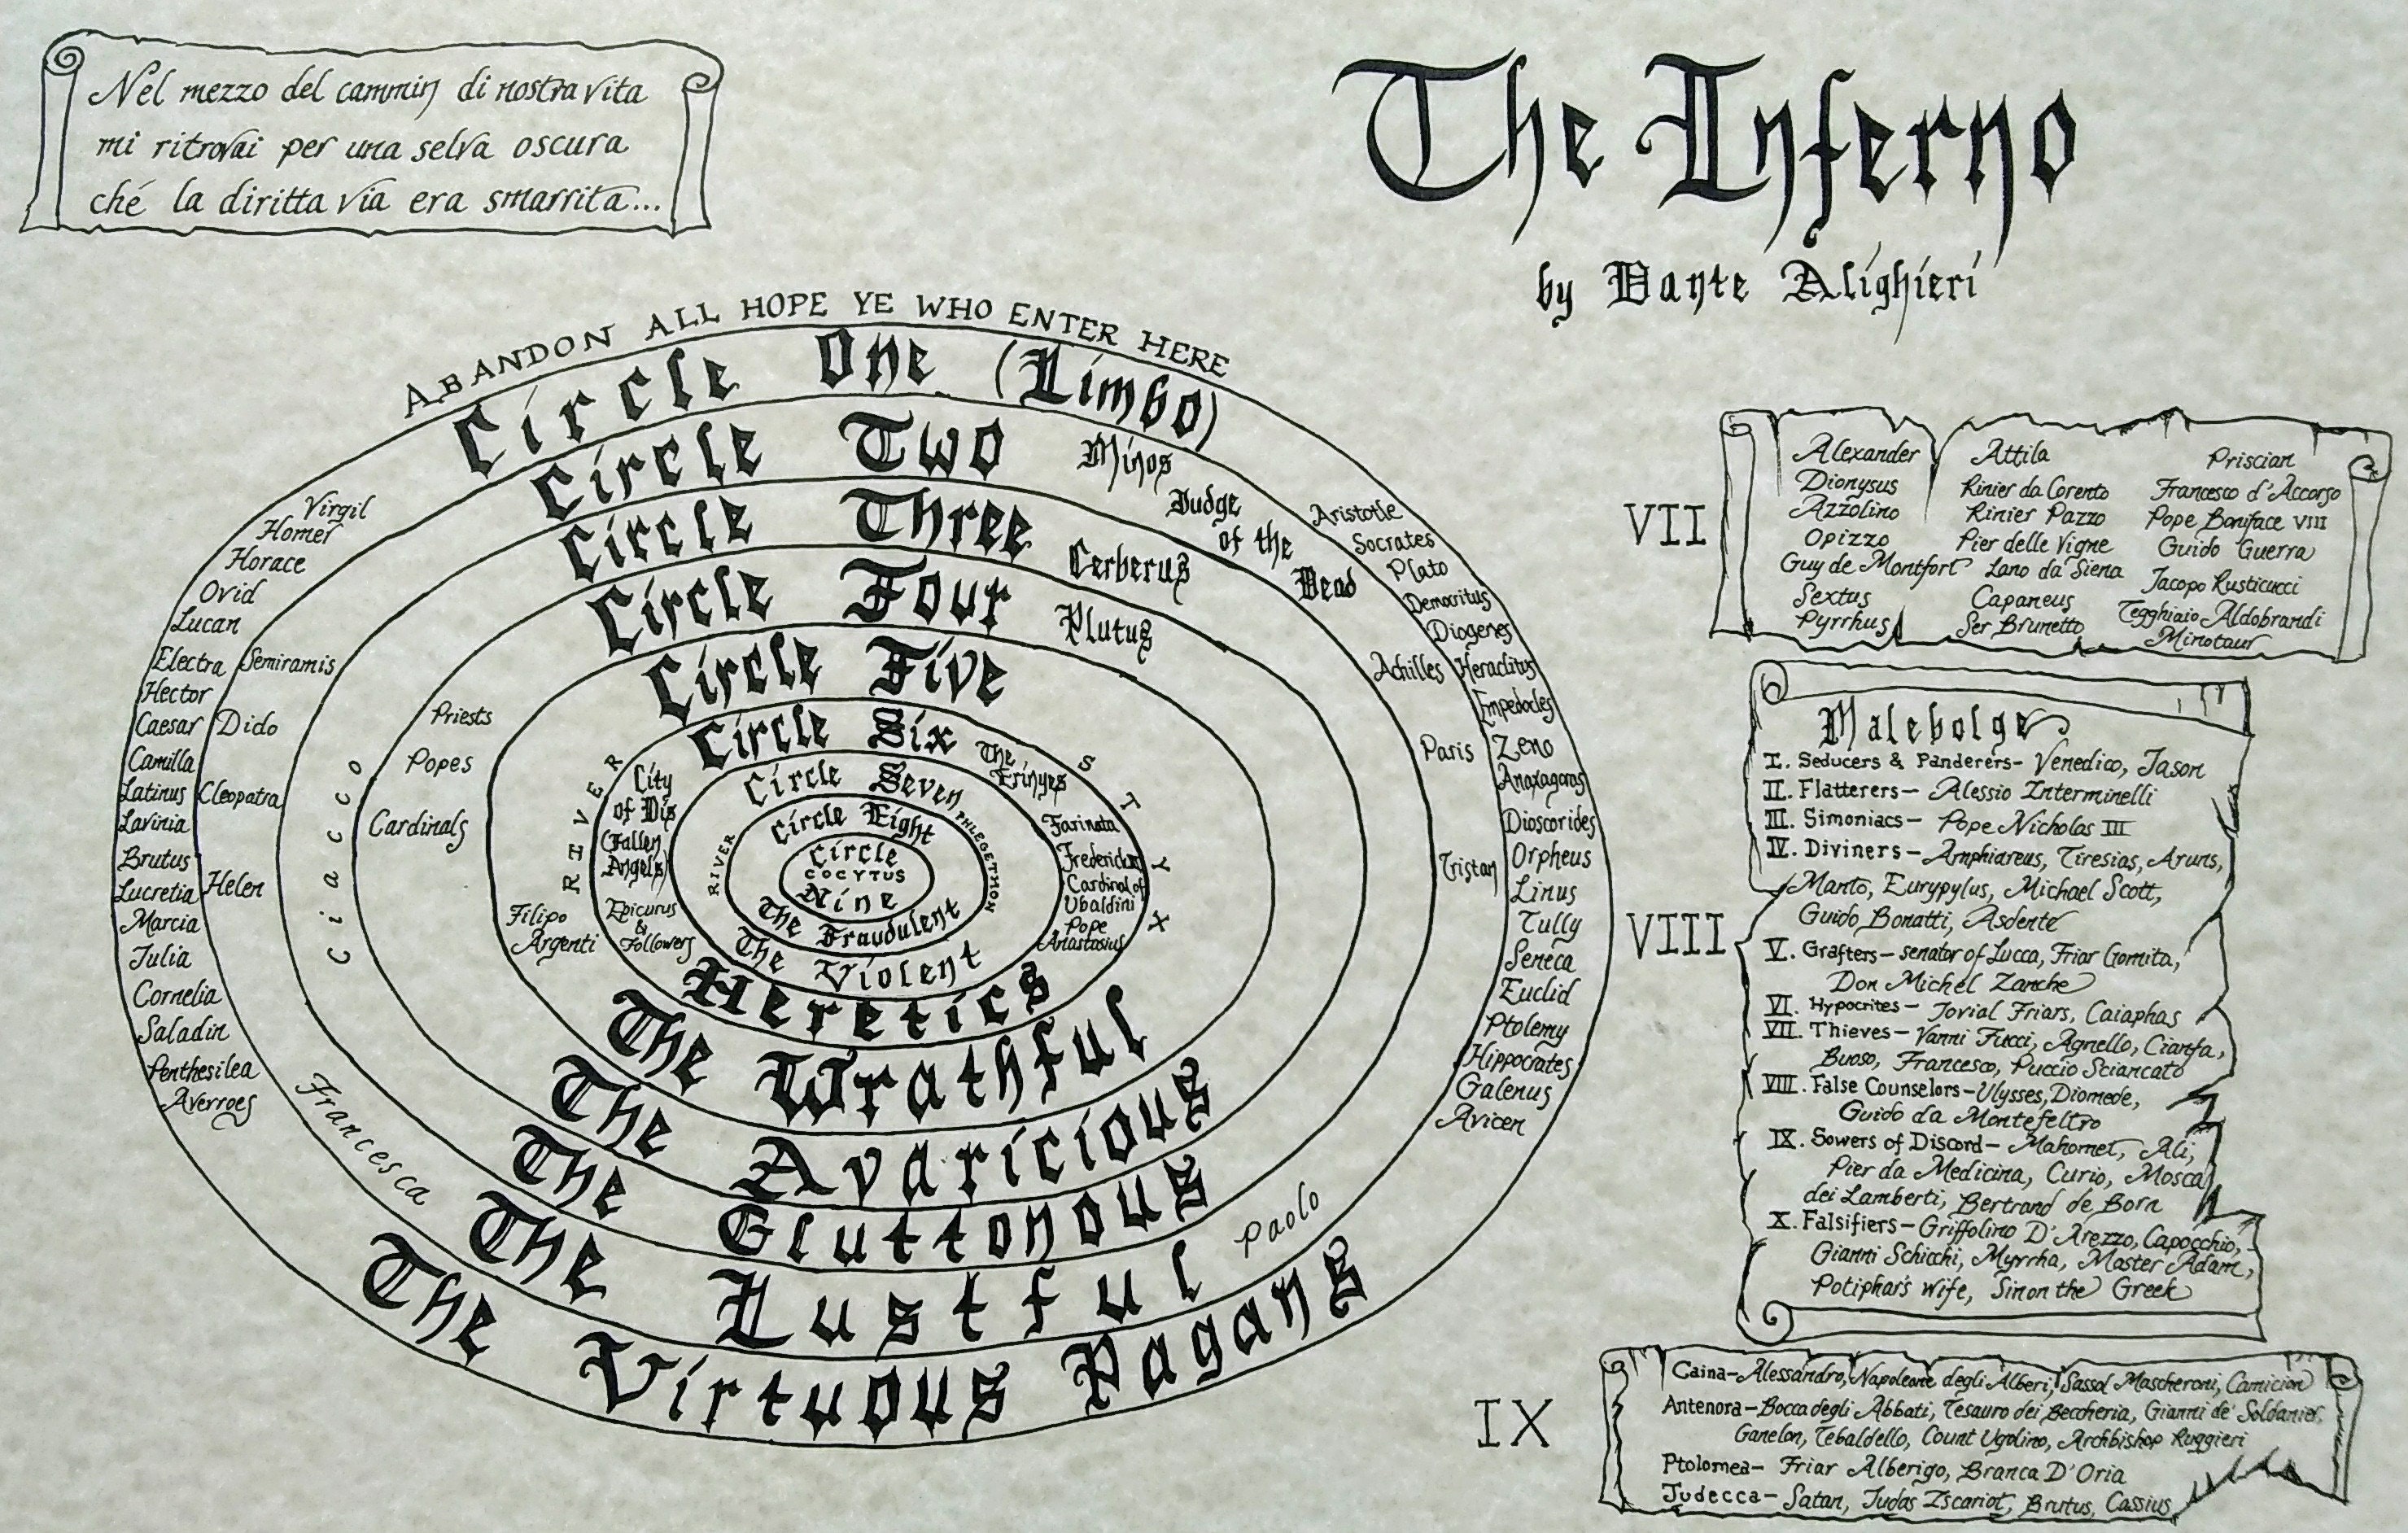 Nel mezzo del cammin di nostra vita
mi ritrovai per una selva oscura
ché la diritta via era smarrita...
The Inferno
by Dante Alighieri
ABANDON ALL HOPE YE WHO ENTER HERE
Circle One (Limbo)
Virgil
Homer
Horace
Ovid
Lucan
Electra
Hector
Caesar
Camilla
Latinus
Lavinia
Brutus
Lucretia
Marcia
Julia
Cornelia
Saladin
Penthesilea
Averroes
Aristotle
Socrates
Plato
Democritus
Diogenes
Heraclitus
Empedocles
Zeno
Anaxagoras
Dioscorides
Orpheus
Linus
Tully
Seneca
Euclid
Ptolemy
Hippocrates
Galenus
Avicen
The Virtuous Pagans
Circle Two
Minos
Judge
of the
Dead
Semiramis
Dido
Cleopatra
Helen
Francesca
Achilles
Paris
Tristan
Paolo
The Lustful
Circle Three
Cerberus
Ciacco
The Gluttonous
Circle Four
Plutus
Priests
Popes
Cardinals
The Avaricious
Circle Five
RIVER STYX
Filipo
Argenti
The Wrathful
Circle Six
The
Erinyes
City
of Dis
(Fallen
Angels)
Epicurus
&
Followers
Farinata
Frederick II
Cardinal of
Ubaldini
Pope
Anastasius
Heretics
Circle Seven
RIVER PHLEGETHON
The Violent
Circle Eight
The Fraudulent
Circle
COCYTUS
Nine
VII
Alexander
Dionysus
Azzolino
Opizzo
Guy de Montfort
Sextus
Pyrrhus
Attila
Rinier da Corento
Rinier Pazzo
Pier delle Vigne
Lano da Siena
Capaneus
Ser Brunetto
Priscian
Francesco d'Accorso
Pope Boniface VIII
Guido Guerra
Jacopo Rusticucci
Tegghiaio Aldobrandi
Minotaur
VIII
Malebolge
I. Seducers & Panderers- Venedico, Jason
II. Flatterers- Alessio Interminelli
III. Simoniacs- Pope Nicholas III
IV. Diviners- Amphiareus, Tiresias, Aruns,
Manto, Eurypylus, Michael Scott,
Guido Bonatti, Asdente
V. Grafters- senator of Lucca, Friar Gomita,
Don Michel Zanche
VI. Hypocrites- Jovial Friars, Caiaphas
VII. Thieves- Vanni Fucci, Agnello, Cianfa,
Buoso, Francesco, Puccio Sciancato
VIII. False Counselors-Ulysses, Diomede,
Guido da Montefeltro
IX. Sowers of Discord- Mahomet, Ali,
Pier da Medicina, Curio, Mosca
dei Lamberti, Bertrand de Born
X. Falsifiers- Griffolino D'Arezzo, Capocchio,
Gianni Schicchi, Myrrha, Master Adam,
Potiphar's Wife, Sinon the Greek
IX
Caina-Alessandro, Napoleone degli Alberi, Sassol Mascheroni, Camicion
Antenora-Bocca degli Abbati, Tesauro dei Beccheria, Gianni de' Soldanier,
Ganelon, Tebaldello, Count Ugolino, Archbishop Ruggieri
Ptolomea- Friar Alberigo, Branca D'Oria
Judecca- Satan, Judas Iscariot, Brutus, Cassius